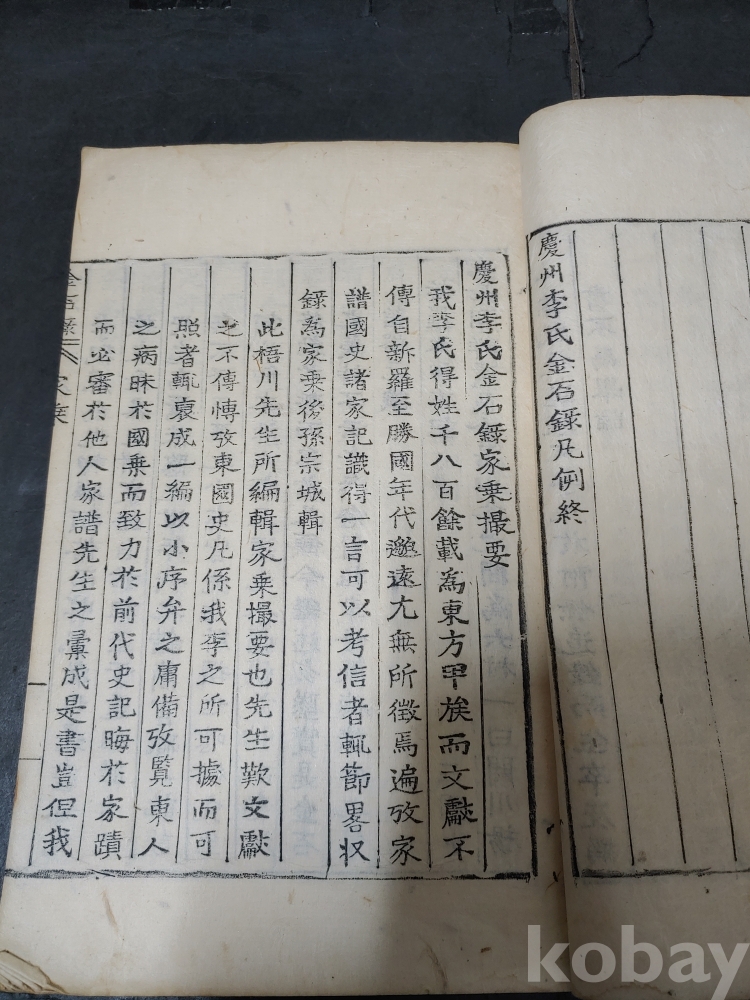 慶州李氏金石錄凡例終
慶州李氏金石錄家乘撮要
我李氏得姓千八百餘載爲東方甲族而文獻不
傳自新羅至勝國年代邈遠尤無所徵焉遍攷家
譜國史諸家記識得一言可以考信者輒節畧収
錄爲家乘後孫宗城輯
此梧川先生所編輯家乘撮要也先生歎文獻
之不傳愽攷東國史凡係我李之所可據而可
照者輒裒成一編以小序弁之庸備攷覽東人
之病昧於國乘而致力於前代史記晦於家蹟
而必審於他人家譜先生之彙成是書豈但我
金石錄 家乘
kobay